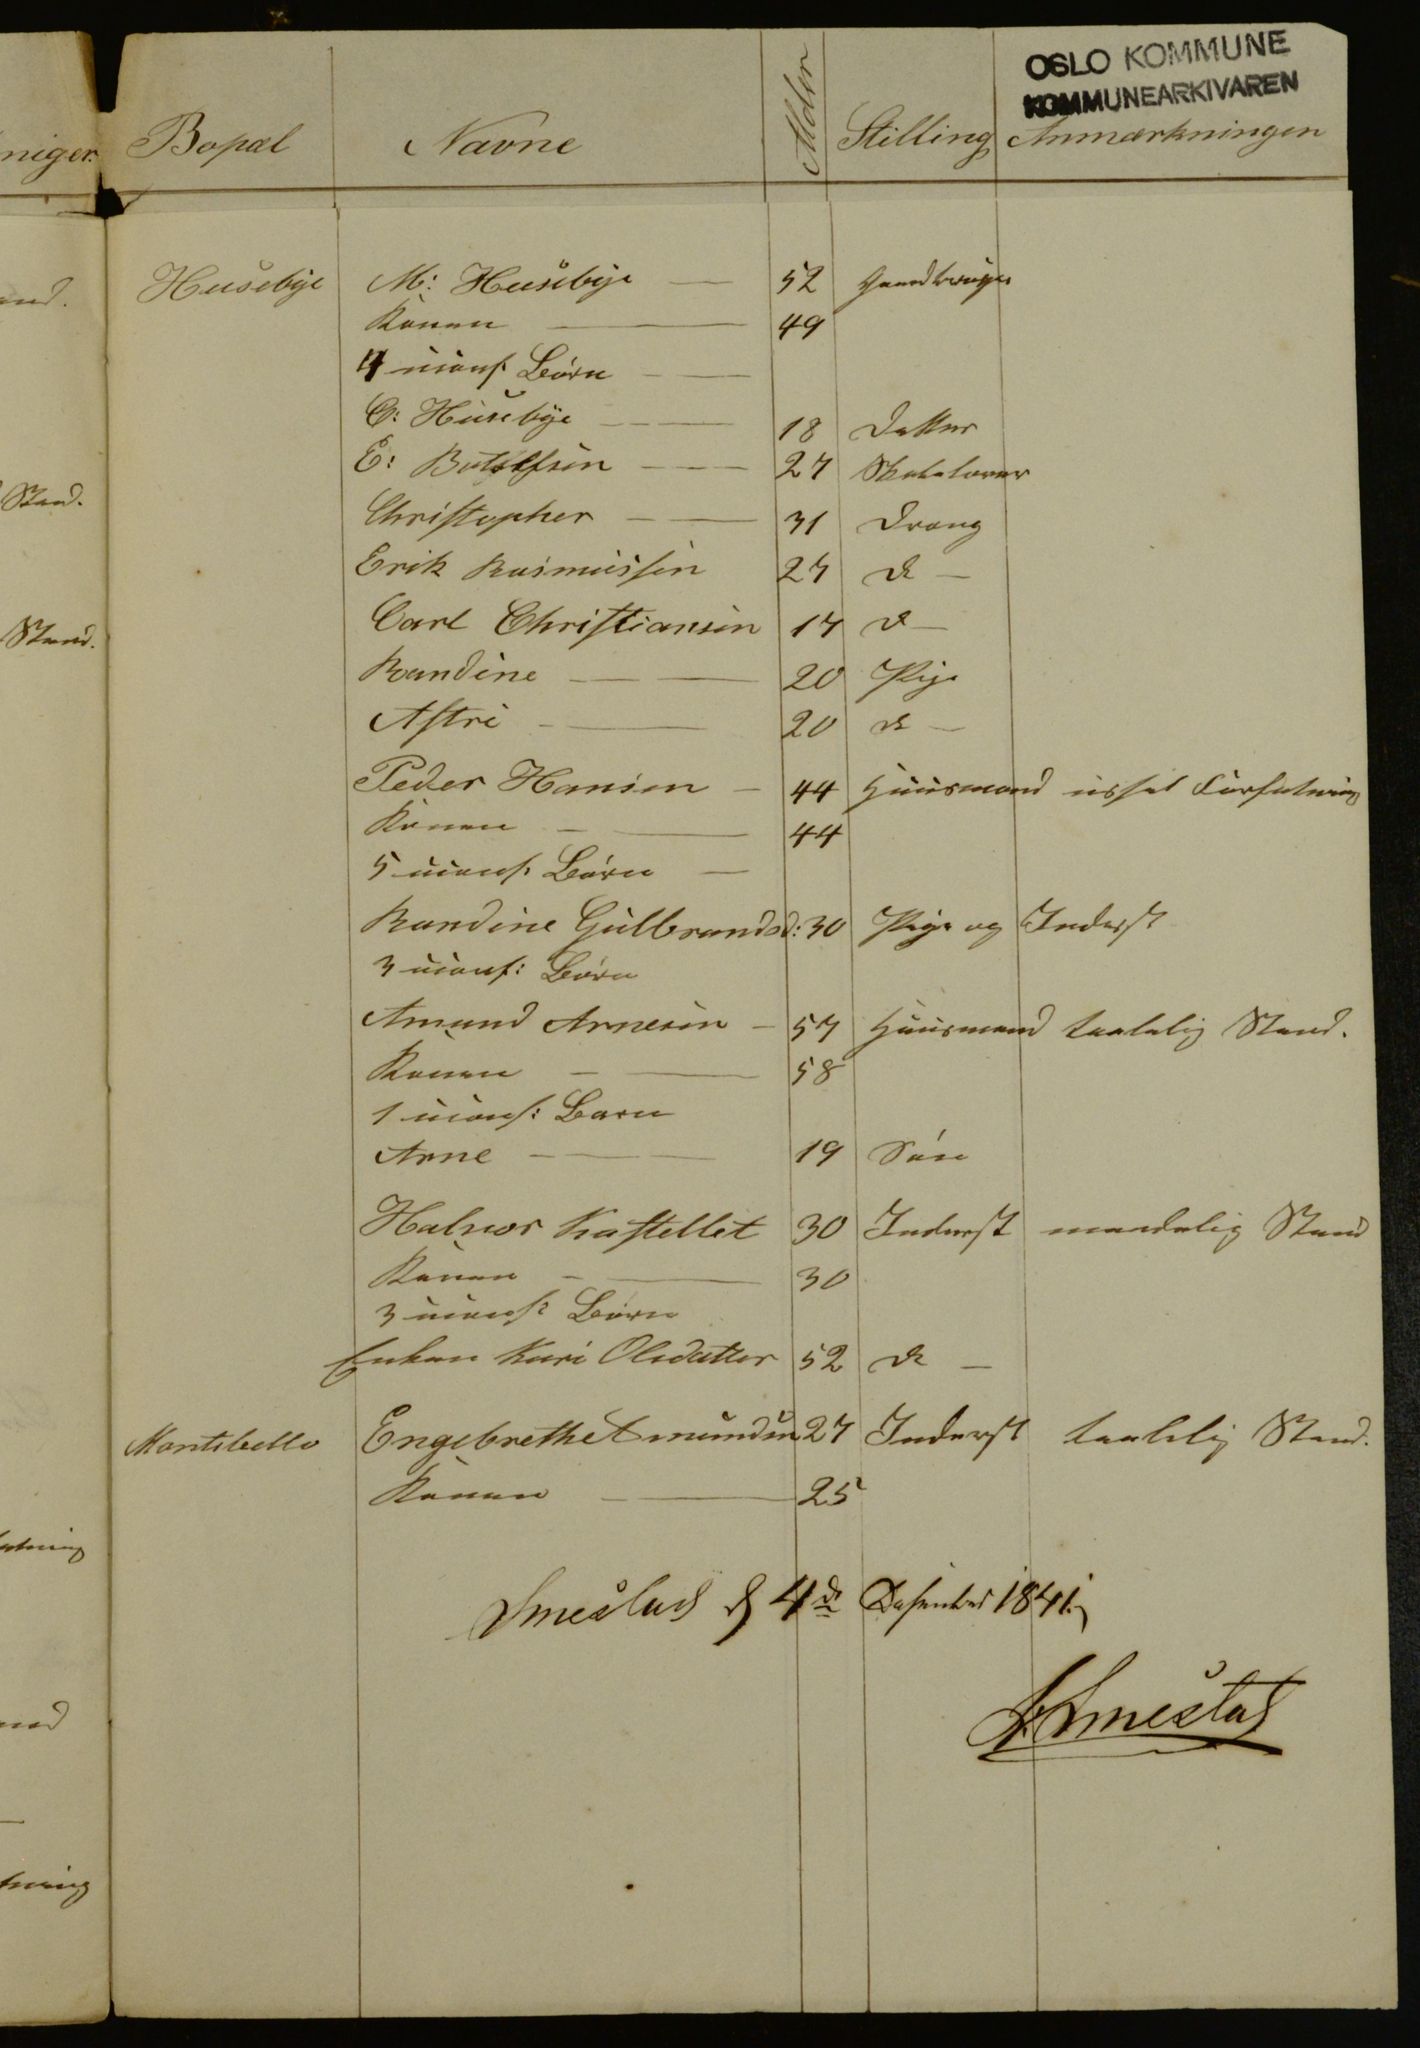 OSLO KOMMUNE
KOMMUNEARKIVAREN
niger. Bopæl Navne Alder Stilling Anmærkninger
and.
Husebye M: Husebye — 52 Gaardbruger
Konen — 49
4 uconf: Börn —
C: Husebye — 18 Datter
E: — 27
Stand.
Christopher — 31 Dreng
Erik Rasmussen 27 do —
Stand.
Carl Christiansen 17 do —
Randine — 20 Pige
Astri — 20 do —
Peder Hansen — 44 Huusmand ussel Forfatning
Konen — 44
5 uconf: Börn —
Randine Gulbrandsd: 30 Pige og Inderst
3 uconf: Börn
Amund Arnesen — 57 Huusmand taalelig Stand.
Konen — 58
1 uconf: Barn
Arne — 19 Sön
Halvor Kastellet 30 Inderst maadelig Stand
Konen — 30
3 uconf: Börn
Enken Kari Olsdatter 52 do —
Montebello Engebrethet Amundsen 27 Inderst taalelig Stand.
Konen — 25
atning
Smestad d 4de December 1841.
Smestad